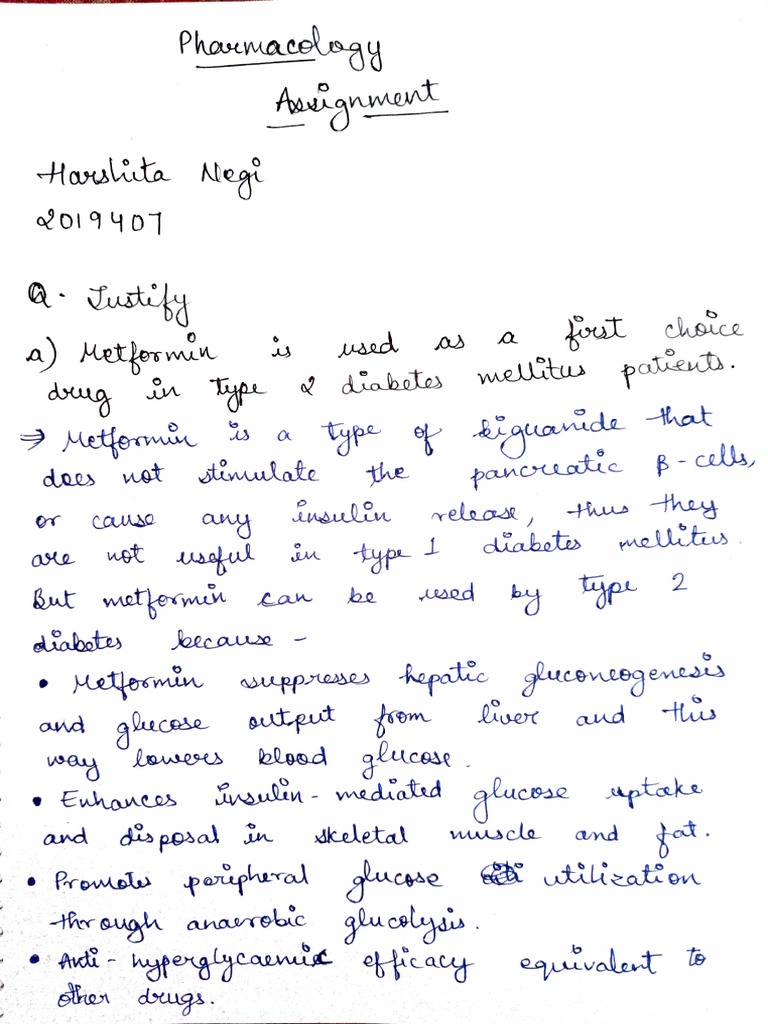 Pharmacology
Assignment
Harshita Negi
2019407
Q. Justify
a) Metformin is used as a first choice
drug in type 2 diabetes mellitus patients.
⇒ Metformin is a type of biguanide that
does not stimulate the pancreatic β-cells,
or cause any insulin release, thus they
are not useful in type 1 diabetes mellitus.
But metformin can be used by type 2
diabetes because -
• Metformin suppresses hepatic gluconeogenesis
and glucose output from liver and this
way lowers blood glucose.
• Enhances insulin-mediated glucose uptake
and disposal in skeletal muscle and fat.
• Promotes peripheral glucose utilization
through anaerobic glucolysis.
• Anti-hyperglycaemic efficacy equivalent to
other drugs.